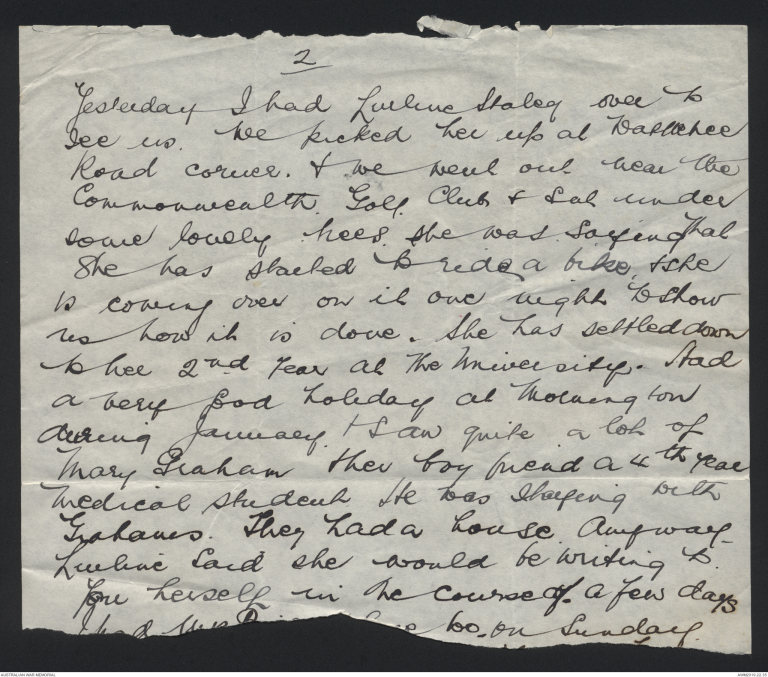 2
Yesterday I had Lurline Staley over to
see us. We picked her up at
Road corner. & we went out near the
Commonwealth Golf Club & sat under
some lovely trees she was saying that
She has started to ride a bike, & she
is coming over on it one night to show
us how it is done. She has settled down
to her 2nd Year at the University. Had
a very good holiday at Mornington
during January & saw quite a lot of
Mary Graham & her boy friend a 4th year
medical student He was staying with
Grahams. They had a house. Anyway
Lurline said she would be writing to
You herself in the course of a few days
I had Mrs here too on Sunday.